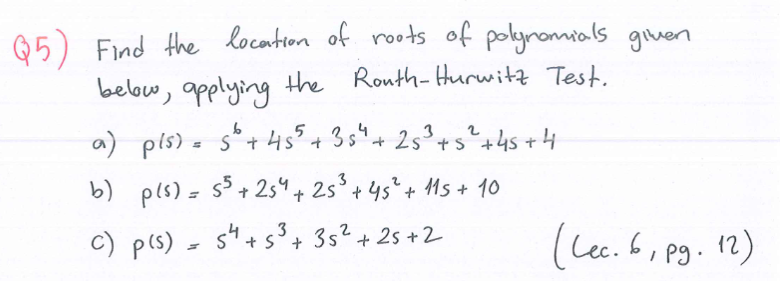 Q5) Find the location of roots of polynomials given
below, applying the Routh-Hurwitz Test.
a) p(s) = s⁶ + 4s⁵ + 3s⁴ + 2s³ + s² + 4s + 4
b) p(s) = s⁵ + 2s⁴ + 2s³ + 4s² + 11s + 10
c) p(s) = s⁴ + s³ + 3s² + 2s + 2 (Lec. 6, pg. 12)